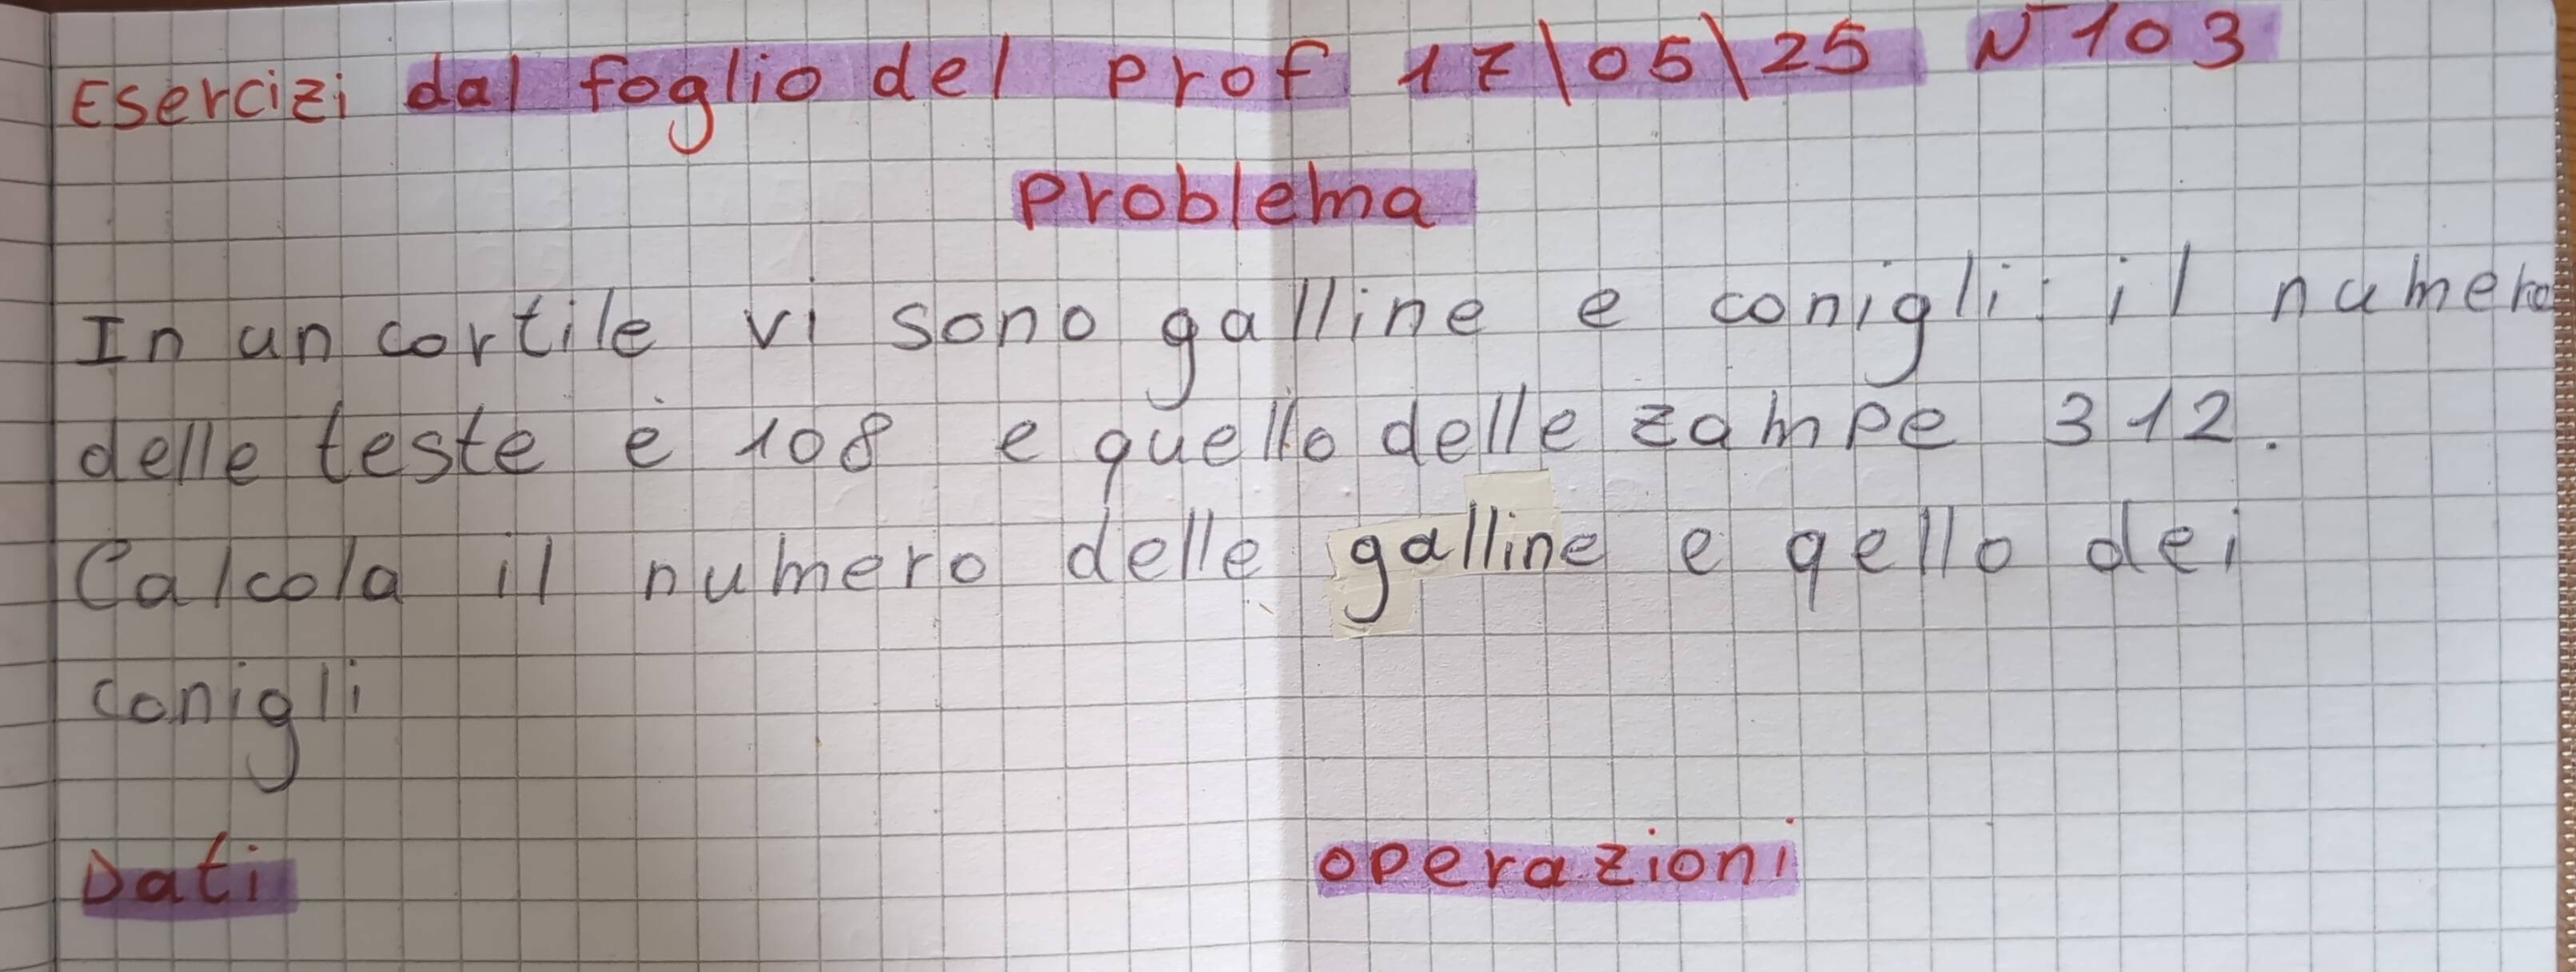 Esercizi dal foglio del prof 17\05\25 N 103
Problema
In un cortile vi sono galline e conigli: il numero
delle teste è 108 e quello delle zampe 312.
Calcola il numero delle galline e qello dei
conigli
Dati operazioni